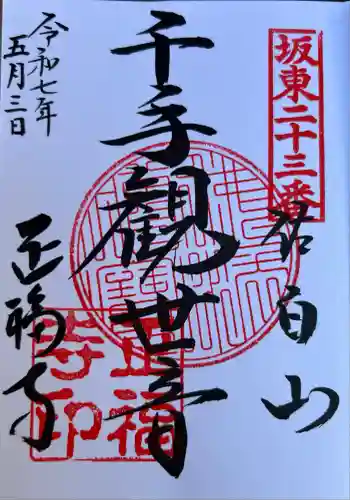 坂東二十三番
佐白山
千手観世音
正福寺
正福
寺印
令和七年
五月三日